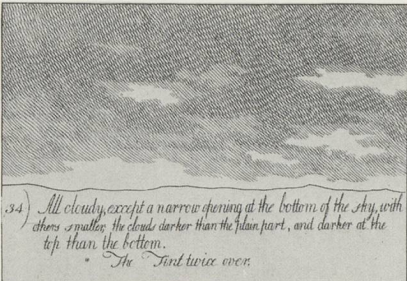 34) All cloudy, except a narrow opening at the bottom of the sky, with
others smaller, the clouds darker than the plain part, and darker at the
top than the bottom.
* The Tint twice over.